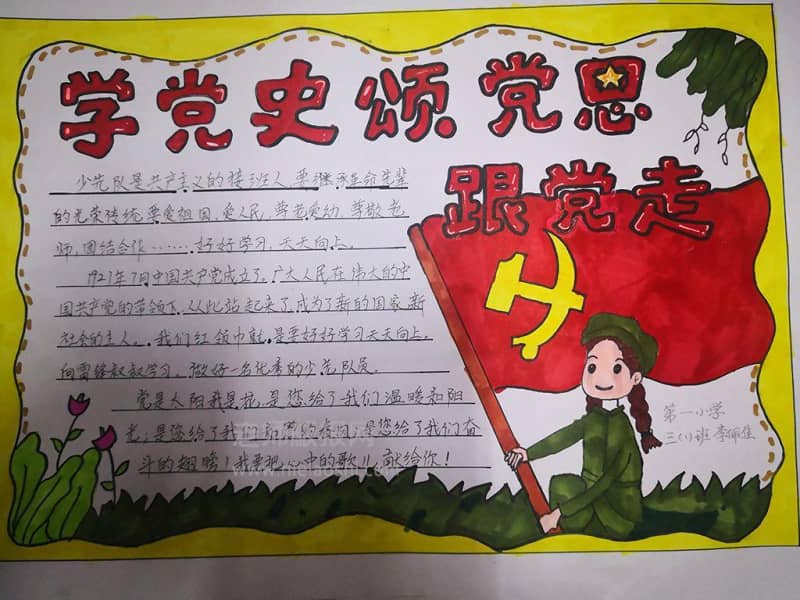 学党史颂党恩
跟党走
少先队是共产主义的接班人,要继承革命先辈
的光荣传统,要爱祖国,爱人民,尊老爱幼,尊敬老
师,团结合作……好好学习,天天向上。
1921年7月中国共产党成立了,广大人民在伟大的中
国共产党的带领下,从此站起来了,成为了新的国家,新
社会的主人。我们红领巾就是要好好学习天天向上,
向雷锋叔叔学习,做好一名优秀的少先队员。
党是太阳我是花,是您给了我们温暖和阳
光;是您给了我
是您给了我们奋
斗的翅膀!我要把心中的歌儿献给你!
第一小学
三(1)班 李佩佳